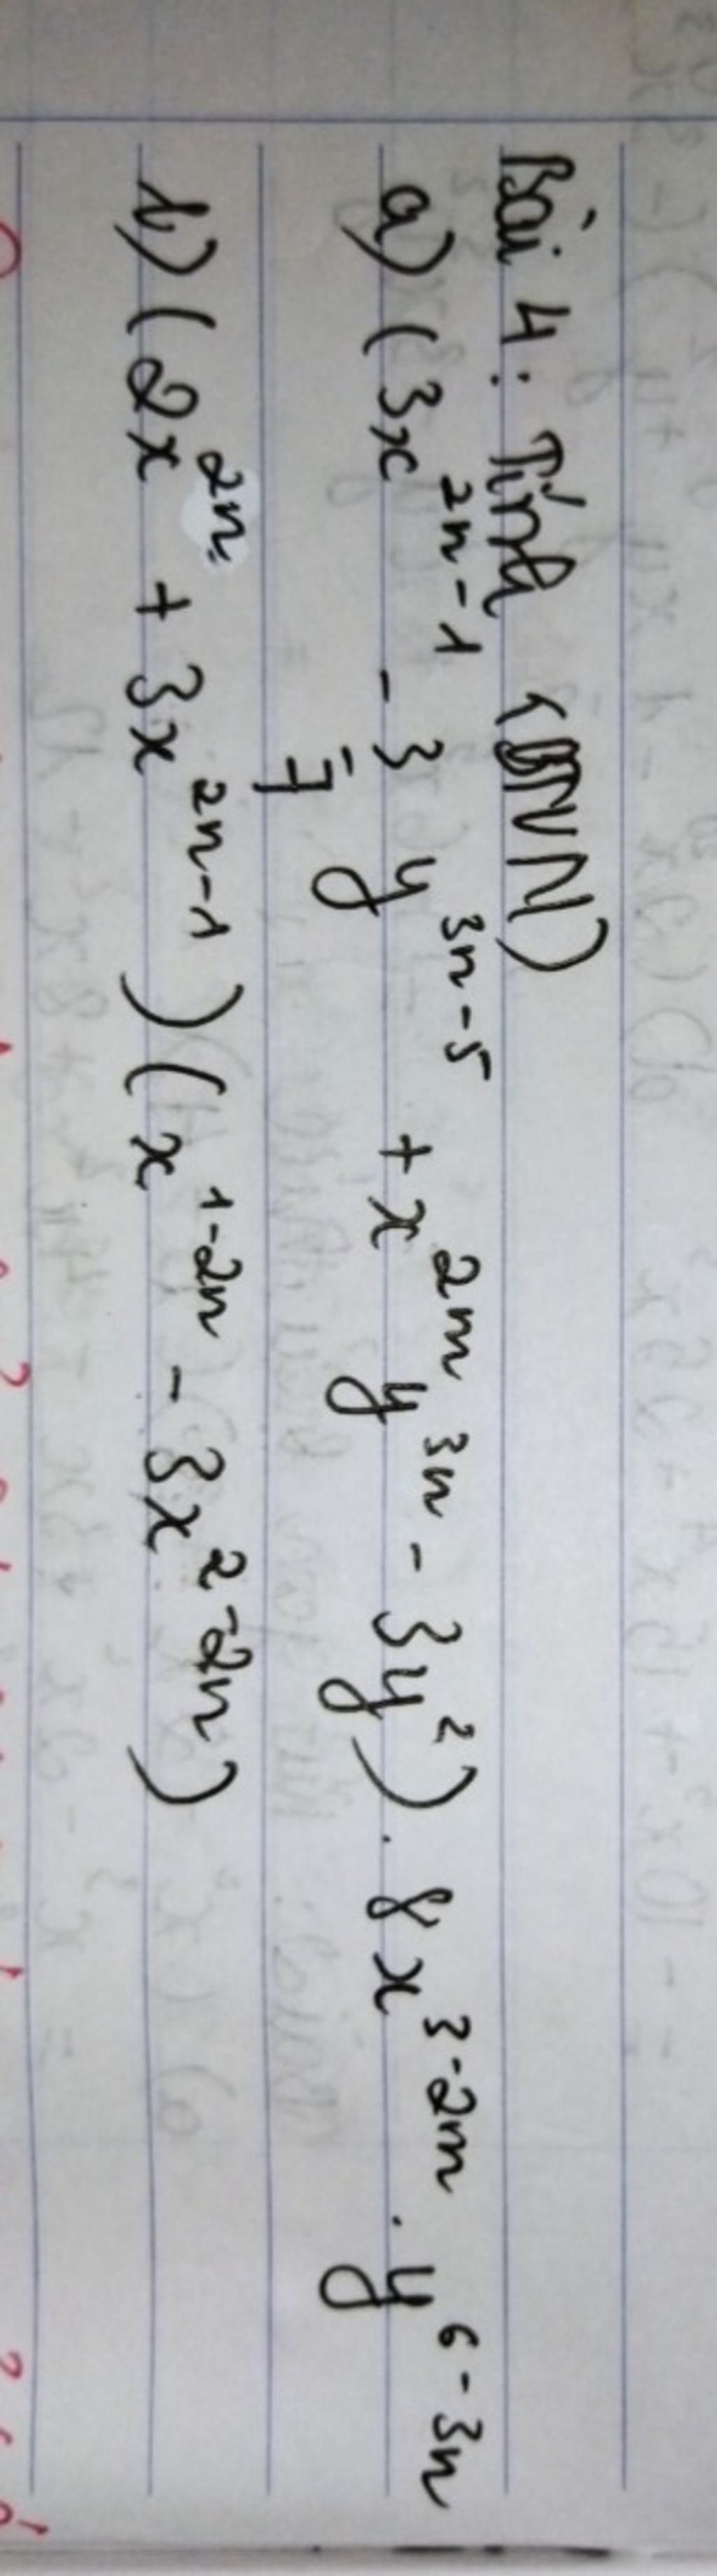 Bài 4: Tính (BNVN)
a) (3x^{2n-1} - \frac{3}{7} y^{3n-5} + x^{2m} y^{3n} - 3y^2) . 8x^{3-2m} . y^{6-3n}
b) (2x^{2n} + 3x^{2n-1})(x^{1-2n} - 3x^{2-2n})